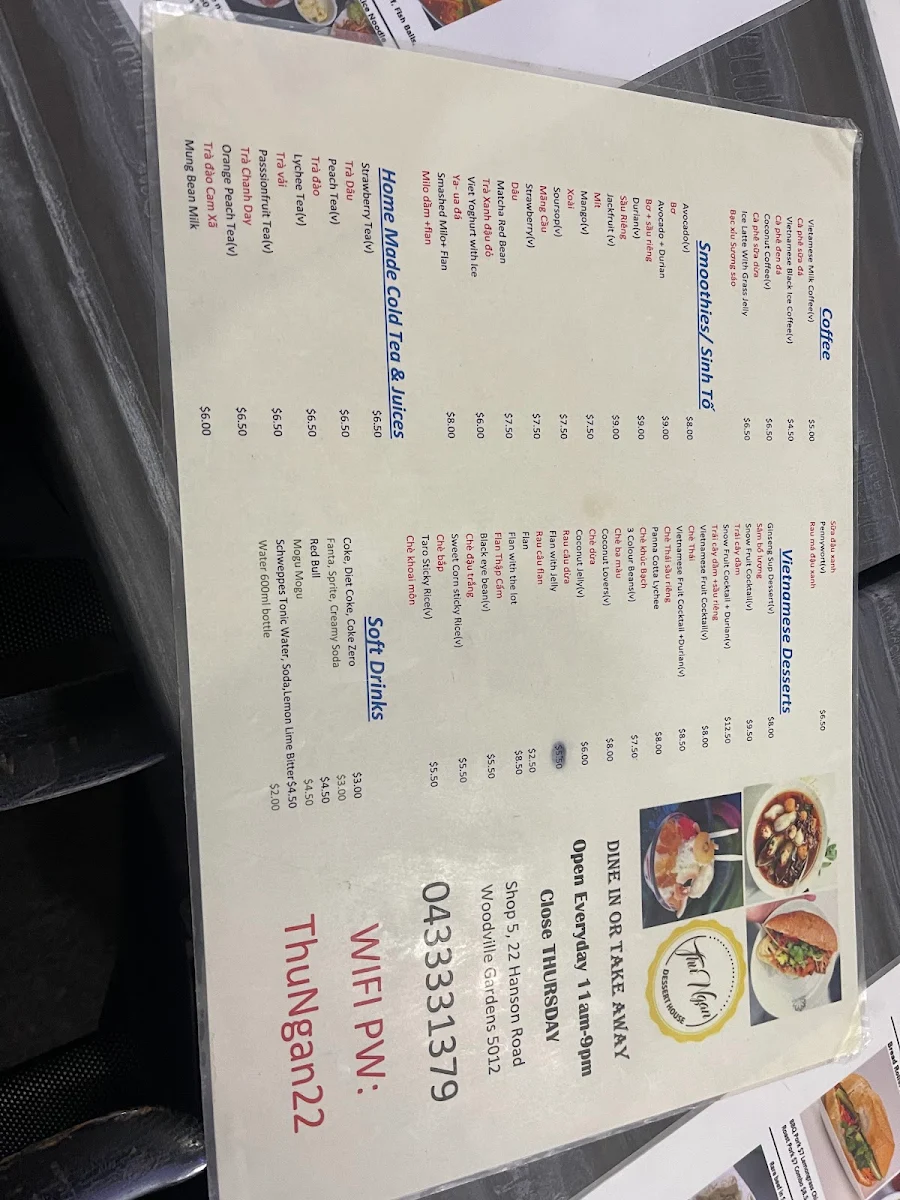 Coffee
Vietamese Milk Coffee(v) $5.00
Cà phê sữa đá
Vietnamese Black Ice Coffee(v) $4.50
Cà phê đen đá
Coconut Coffee(v) $6.50
Cà phê sữa dừa
Ice Latte With Grass Jelly $6.50
Bạc xỉu Sương sáo
Smoothies/ Sinh Tố
Avocado(v) $8.00
Bơ
Avocado + Durian $9.00
Bơ + sầu riêng
Durian(v) $9.00
Sầu Riêng
Jackfruit (v) $9.00
Mít
Mango(v) $7.50
Xoài
Soursop(v) $7.50
Mãng Cầu
Strawberry(v) $7.50
Dâu
Matcha Red Bean $7.50
Trà Xanh đậu đỏ
Viet Yoghurt with Ice $6.00
Ya- ua đá
Smashed Milo+ Flan $8.00
Milo dầm +flan
Home Made Cold Tea & Juices
Strawberry Tea(v) $6.50
Trà Dâu
Peach Tea(v) $6.50
Trà đào
Lychee Tea(v) $6.50
Trà vải
Passsionfruit Tea(v) $6.50
Trà Chanh Day
Orange Peach Tea(v) $6.50
Trà đào Cam Xã
Mung Bean Milk $6.00
Sữa đậu xanh
Pennywort(v) $6.50
Rau má đậu xanh
Vietnamese Desserts
Ginseng Sup Dessert(v) $8.00
Sâm bổ lượng
Snow Fruit Cocktail(v) $9.50
Trái cây dầm
Snow Fruit Cocktail + Durian(v) $12.50
Trái cây dầm +sầu riêng
Vietnamese Fruit Cocktail(v) $8.00
Chè Thái
Vietnamese Fruit Cocktail +Durian(v) $8.50
Chè Thái sầu riêng
Panna Cotta Lychee $8.00
Chè khúc Bạch
3 Colour Beans(v) $7.50
Chè ba màu
Coconut Lovers(v) $8.00
Chè dừa
Coconut Jelly(v) $6.00
Rau câu dừa
Flan with Jelly $5.50
Rau câu flan
Flan $2.50
Flan with the lot $8.50
Flan Thập Cẩm
Black eye bean(v) $5.50
Chè đậu trắng
Sweet Corn sticky Rice(v) $5.50
Chè bắp
Taro Sticky Rice(v) $5.50
Chè khoai môn
Soft Drinks
Coke, Diet Coke, Coke Zero $3.00
Fanta, Sprite, Creamy Soda $3.00
Red Bull $4.50
Mogu Mogu $4.50
Schweppes Tonic Water, Soda,Lemon Lime Bitter $4.50
Water 600ml bottle $2.00
Thu Ngan
DESSERT HOUSE
DINE IN OR TAKE AWAY
Open Everyday 11am-9pm
Close THURSDAY
Shop 5, 22 Hanson Road
Woodville Gardens 5012
0433331379
WIFI PW:
ThuNgan22